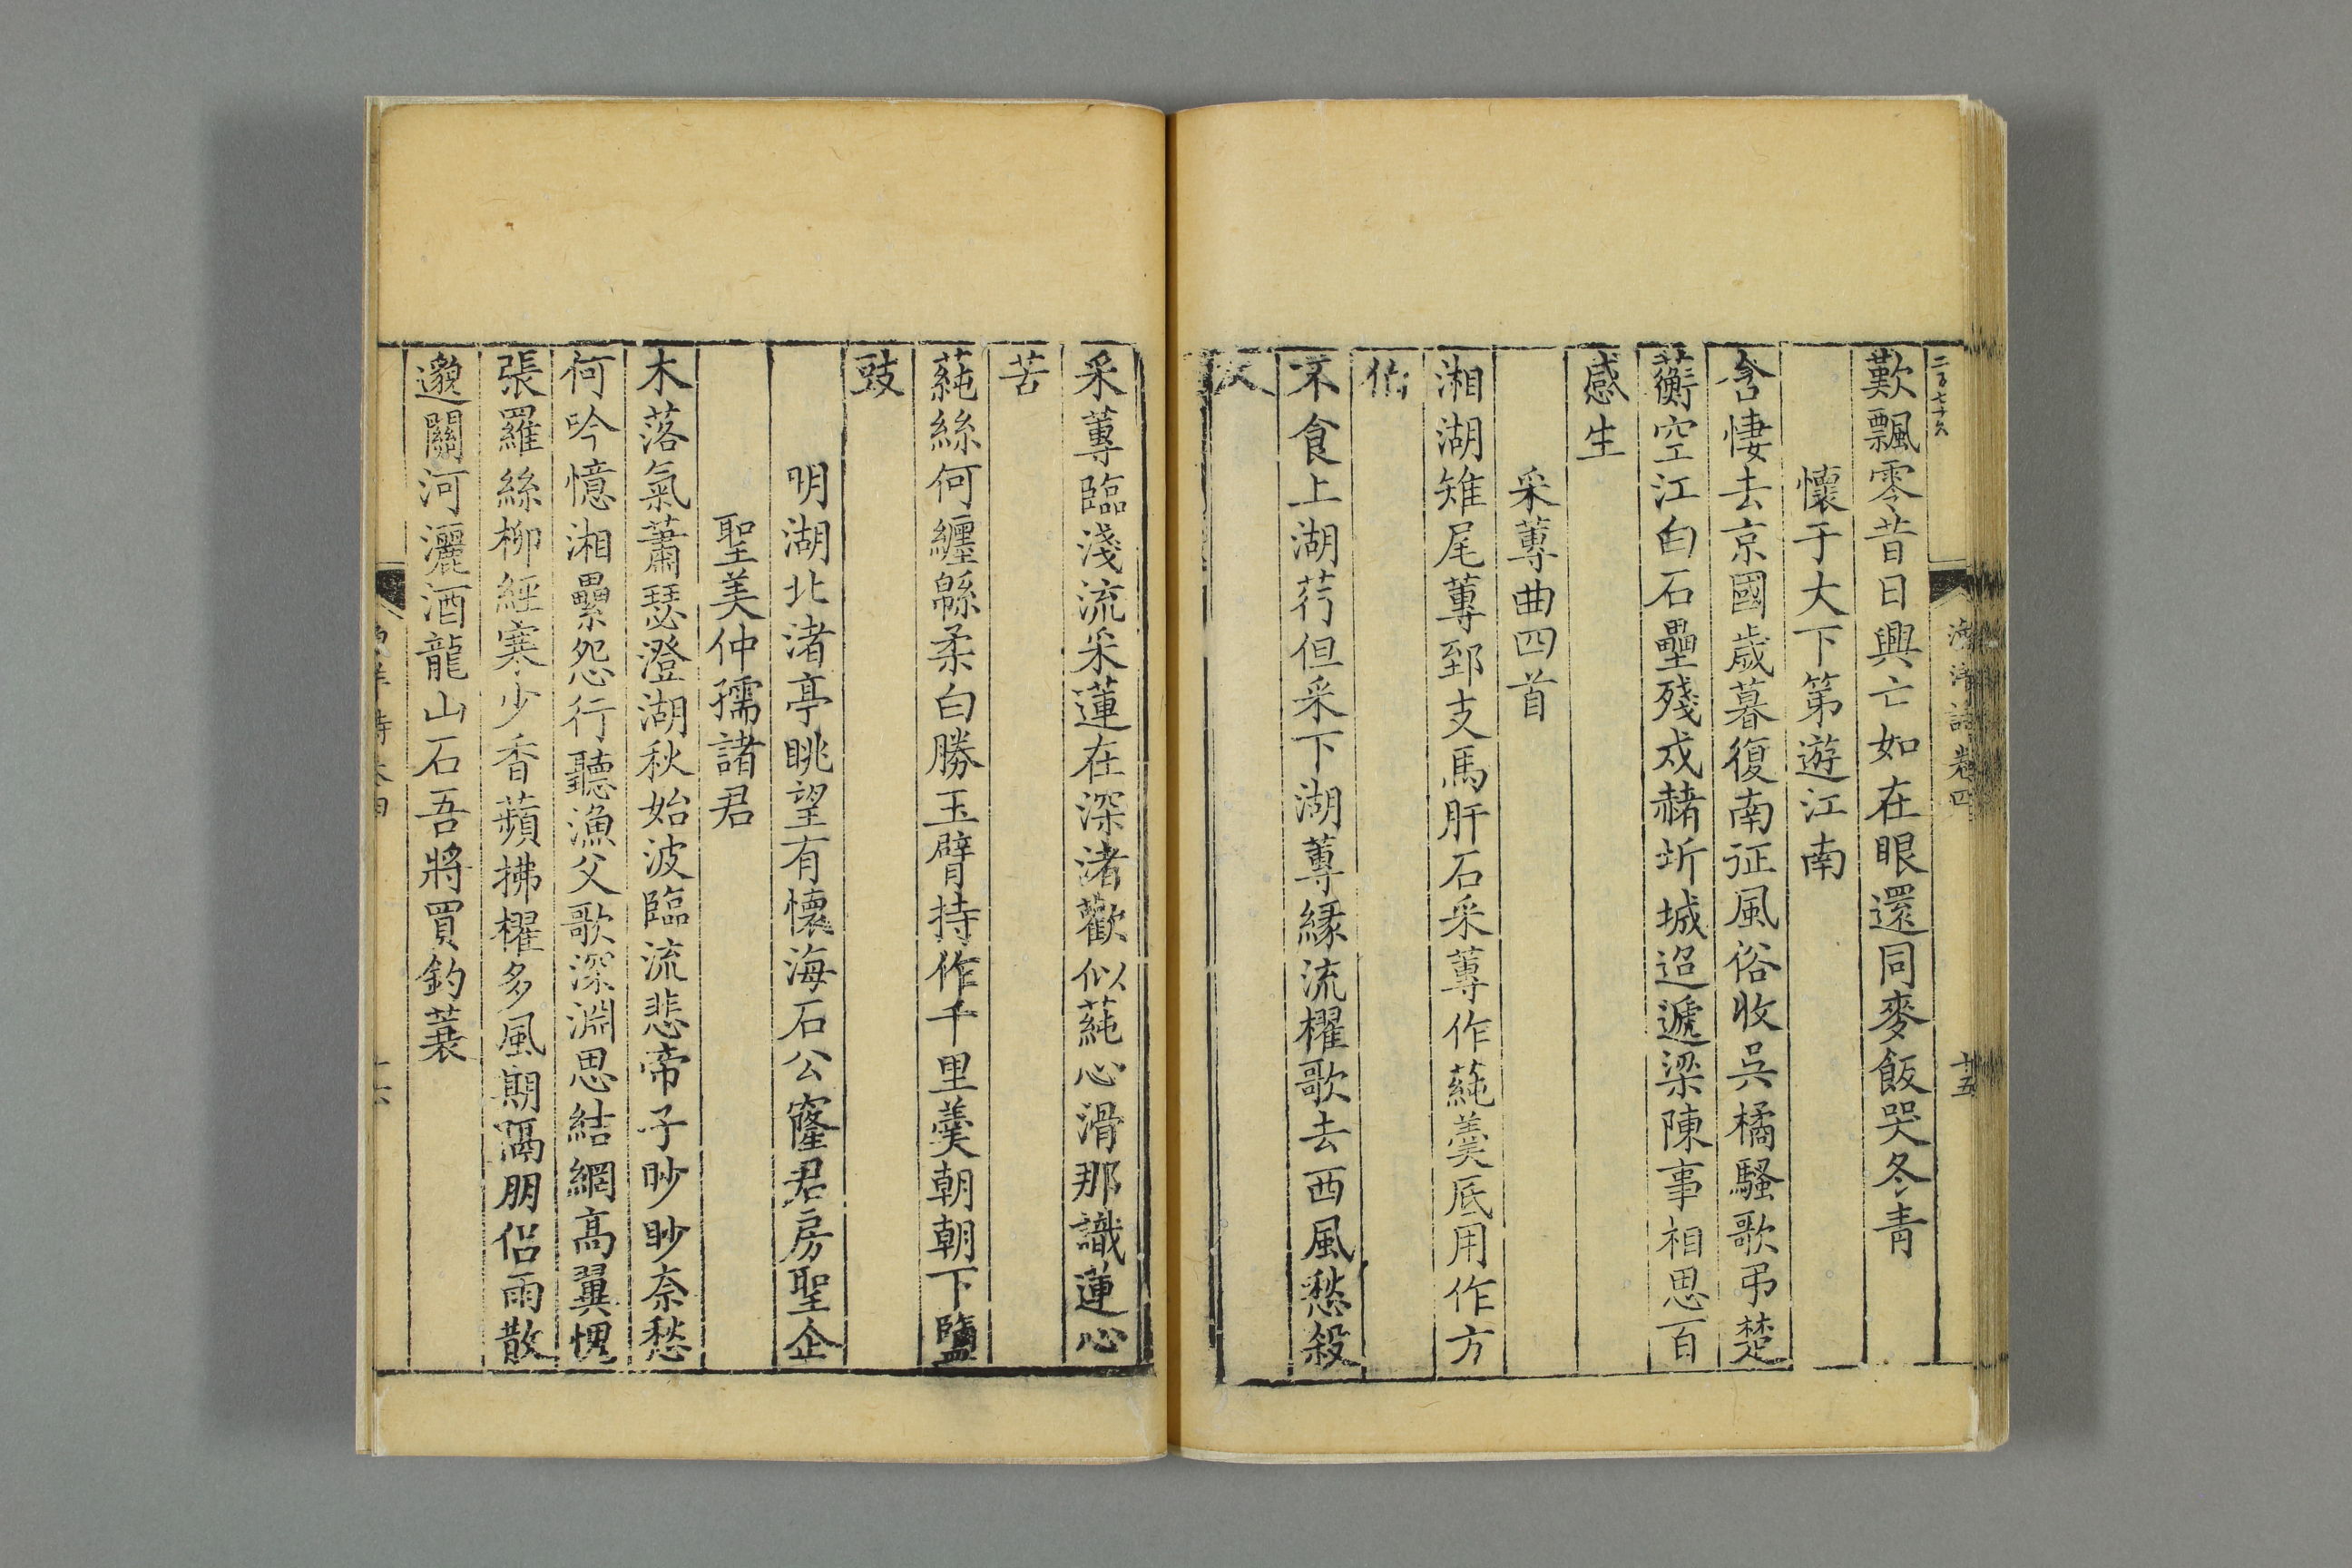 二百七十九
卷四
十五
歎飄零昔日興亡如在眼還同麥飯哭冬青
懷于大下第遊江南
含悽去京國歲暮復南征風俗收吳橘騷歌弔楚
蘅空江白石壘殘戍赭圻城迢遞梁陳事相思百
感生
采蓴曲四首
湘湖雉尾蓴郅支馬肝石采蓴作蒓羹底用作方
伯
不食上湖荇但采下湖蓴緣流櫂歌去西風愁殺
采蓴臨淺流采蓮在深渚歡似蒓心滑那識蓮心
苦
蒓絲何纏緜柔白勝玉臂持作千里羹朝朝下鹽
豉
明湖北渚亭眺望有懷海石公窿君房聖企
聖美仲孺諸君
木落氣蕭瑟澄湖秋始波臨流悲帝子眇眇奈愁
何吟憶湘纍怨行聽漁父歌深淵思結網高翼愧
張羅絲柳經寒少香蘋拂櫂多風期隔朋侶雨散
邈關河灑酒龍山石吾將買釣蓑